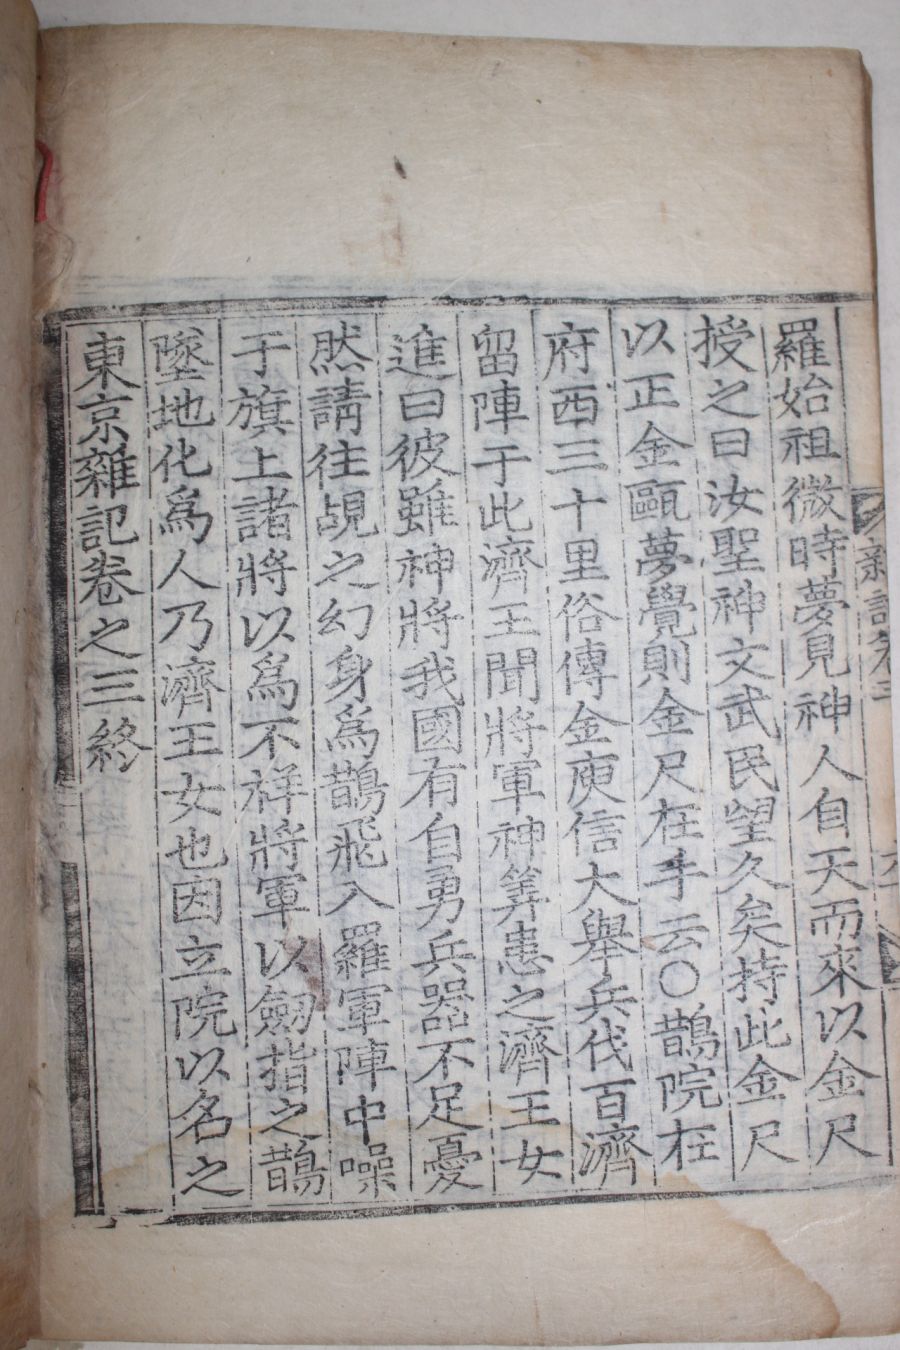 羅始祖微時夢見神人自天而來以金尺
授之曰汝聖神文武民望久矣持此金尺
以正金甌夢覺則金尺在手云○鵲院在
府西三十里俗傳金庾信大舉兵伐百濟
留陣于此濟王聞將軍神筭患之濟王女
進曰彼雖神將我國有自勇兵器不足憂
然請往覘之幻身爲鵲飛入羅軍陣中噪
于旗上諸將以爲不祥將軍以劒指之鵲
墜地化爲人乃濟王女也因立院以名之
東京雜記卷之三終